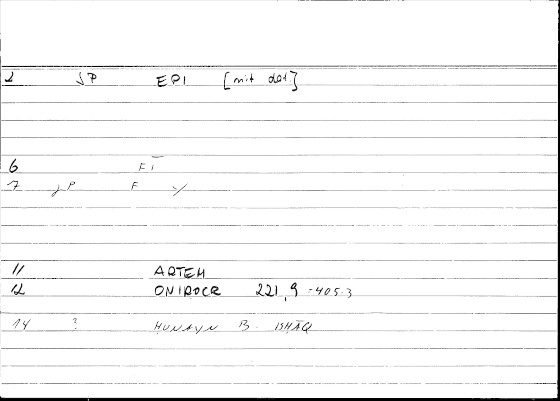 2 JP EPI [mit dat.]
6 FĪ
7 JP F y
11 ARTEM
12 ONIROCR 221,9 = 405.3
14 ? HUNAYN B. ISHĀQ